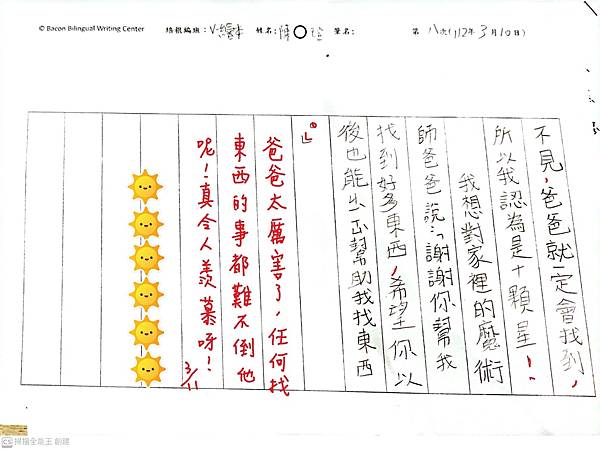 © Bacon Bilingual Writing Center
培根編班: 姓名:陳○ 筆名: 第八次(112年3月10日)
不見,爸爸就一定會找到,
所以我認為是十顆星!
我想對家裡的魔術
師爸爸說:「謝謝你幫我
找到好多東西,希望你以
後也能出面幫助我找東西
。」
爸爸太厲害了,任何找
東西的事都難不倒他
呢!真令人羨慕呀!
3/11
CS 掃描全能王 創建